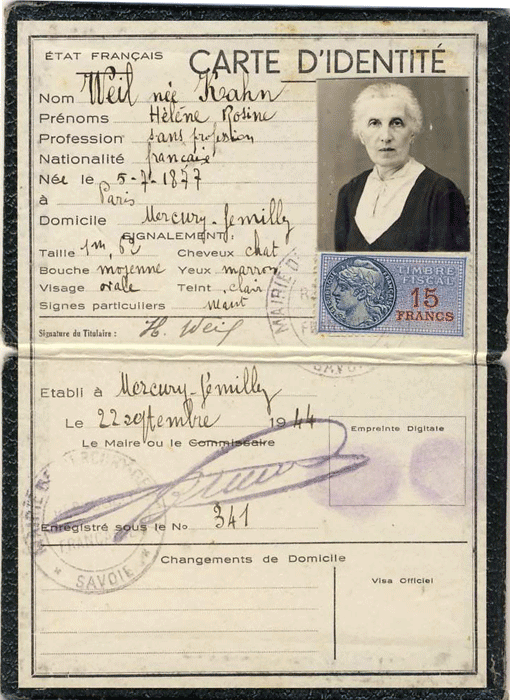 ÉTAT FRANÇAIS
CARTE D'IDENTITÉ
Nom Weil née Krahn
Prénoms Hélène Rosine
Profession sans profession
Nationalité française
Née le 5-7-1877
à Paris
Domicile Mercury-Gemilly
SIGNALEMENT:
Taille 1m,62 Cheveux chat
Bouche moyenne Yeux marron
Visage ovale Teint clair
Signes particuliers néant
TIMBRE
FISCAL
15
FRANCS
MAIRIE DE
SAVOIE
Signature du Titulaire : H. Weil
Etabli à Mercury-Gemilly
Le 22 septembre 1944
Le Maire ou le Commissaire
Empreinte Digitale
Enregistré sous le No 341
MAIRIE
* SAVOIE *
Changements de Domicile
Visa Officiel